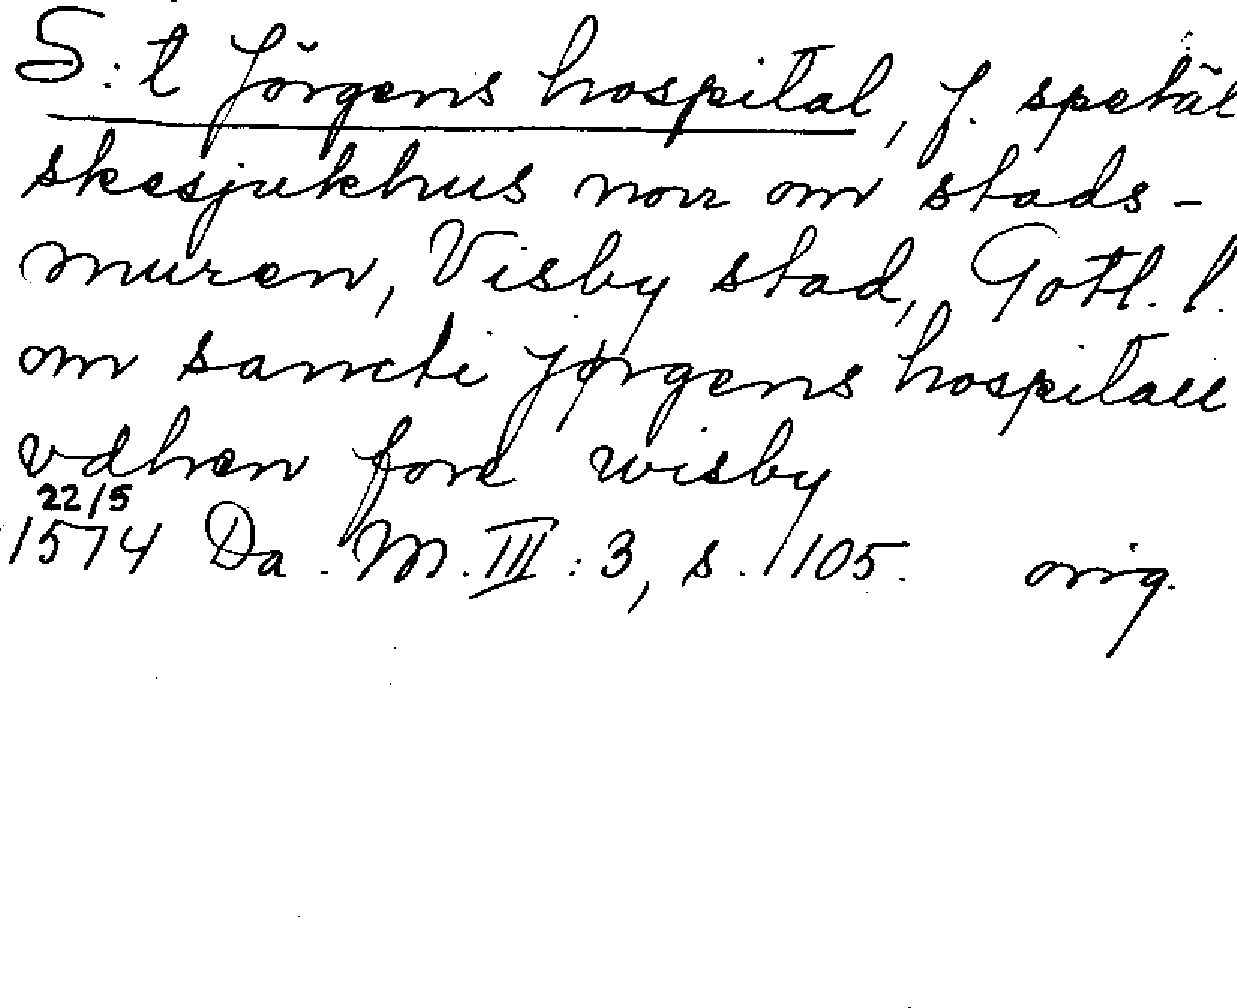 S:t Jörgens hospital, f. spetäl
skesjukhus norr om stads-
muren, Visby stad, Gotl. l.
om sancti Jørgens hospitall
vdhen fore wisby
22/5
1574 Da. M. III:3, s. 105. orig.